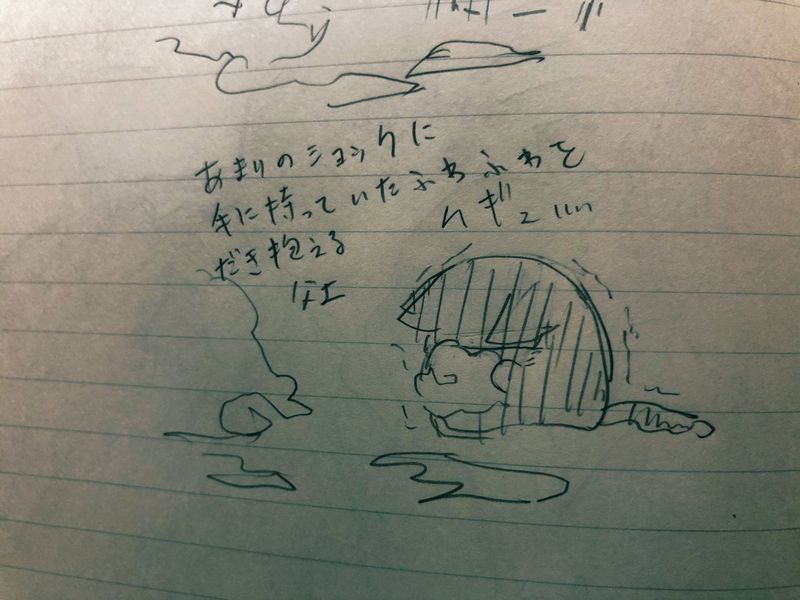 あまりのショックに
手に持っていたふわふわを
だき抱える